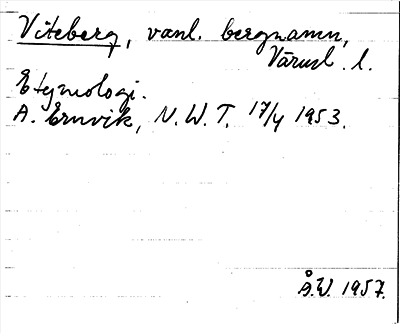 Viteberg, vanl. bergnamn,
Värml. l.
Etymologi.
A. Ernvik, N.W.T. 17/4 1953.
Å.W. 1957.